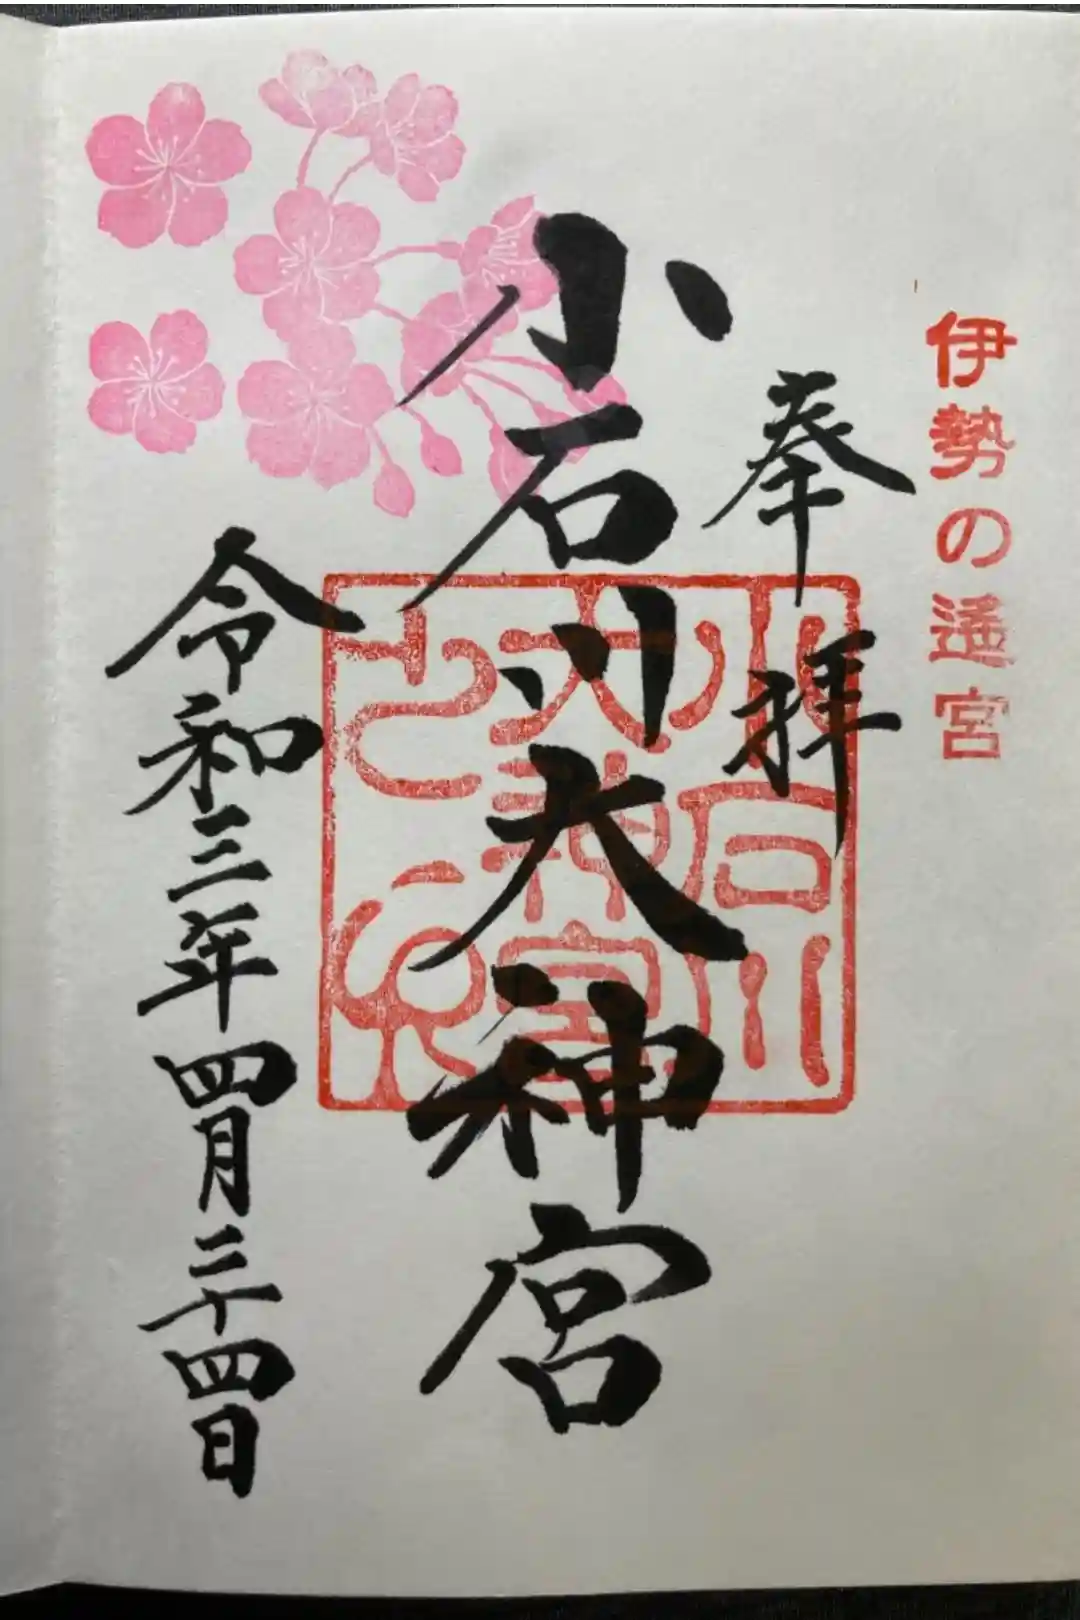 伊勢の遙宮
奉拝
小石川大神宮
小石川
大神宮
之印
令和三年四月二十四日